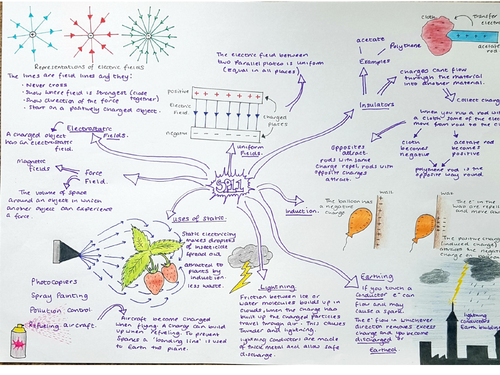 Representations of electric fields
The lines are field lines and they:
- Never cross
- Show where field is strongest (close together)
- Show direction of the force
- Start on a positively charged object.
Electrostatic Fields.
A charged object
has an electrostatic field.
Magnetic
fields
Force
Field.
The volume of space
around an object in which
another object can experience
a force.
The electric field between
two Parallel plates is uniform
(equal in all places)
positive
Electric
field
negative
charged
plates
Uniform
Fields.
SP11
acetate
Polythene
Examples
Insulators
charges can't flow
through the material
into another material.
Collect
Opposites
attract
rods with same
charge repel, rods with
opposite charges
attract.
cloth
becomes
negative
acetate rod
becomes
positive
polythene rod is the
opposite way round.
Cloth
transfer
acetate
rod
Induction.
The balloon has
a negative
charge
wall
wall
Uses of static.
Static electricity
makes droplets of
insecticide
spread out
attracted to
plants by
induction
less waste.
Photocopiers
Spray Painting
Pollution Control
Refueling aircraft.
Aircraft become charged
when flying. A charge can build
up when refueling. To prevent
sparks a "bonding line" is used
to Earth the plane.
Lightning
Friction between ice or
water molecules builds up in
clouds, when the charge has
built up the charged particles
travel through air. This causes
thunder and lightning.
Lightning conductors are made
of thick metal and allow safe
discharge.
Earthing
If you touch a
conductor e⁻ can
flow and may
cause a spark.
The e⁻ flow in whichever
direction removes excess
charge and you become
discharged or
Earthed
lightning
conductors
Earth buildings